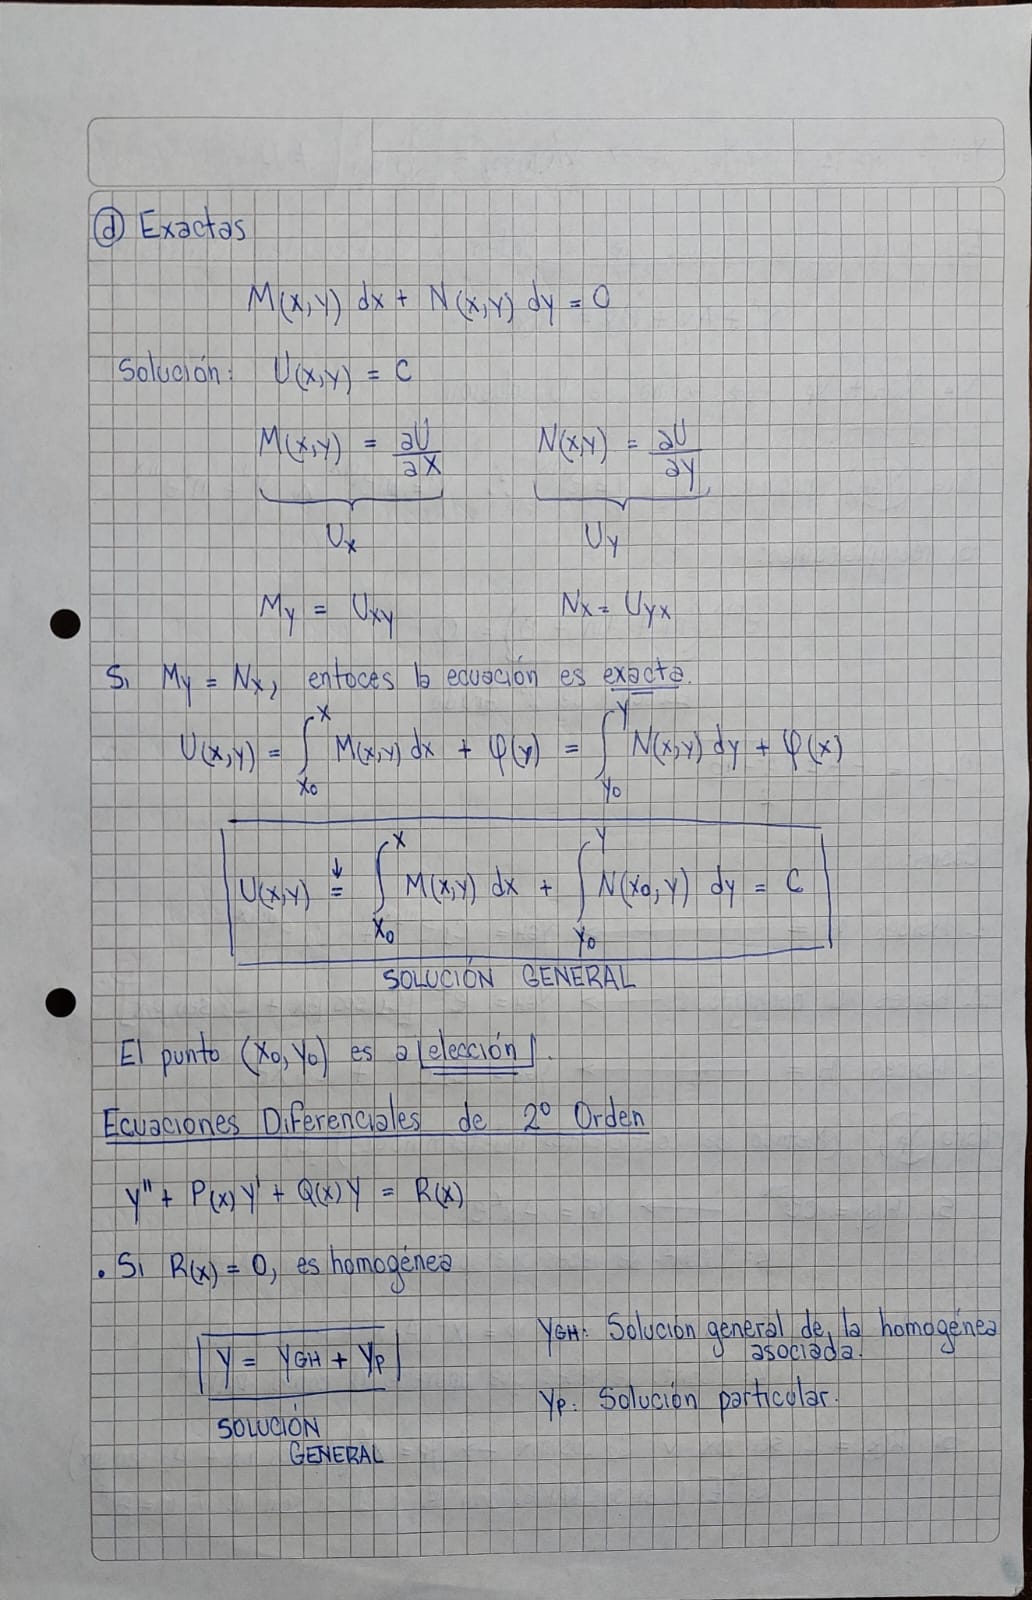 ⓓ Exactas
M(x,y) dx + N(x,y) dy = 0
Solución: U(x,y) = C
M(x,y) = ∂U/∂x N(x,y) = ∂U/∂y
Ux Uy
My = Uxy Nx = Uyx
Si My = Nx, entoces la ecuación es exacta.
U(x,y) = ∫_{x0}^{x} M(x,y) dx + φ(y) = ∫_{y0}^{y} N(x,y) dy + φ(x)
U(x,y) ↓= ∫_{x0}^{x} M(x,y) dx + ∫_{y0}^{y} N(x0,y) dy = C
SOLUCIÓN GENERAL
El punto (x0,y0) es a elección.
Ecuaciones Diferenciales de 2º Orden
y'' + P(x) y' + Q(x) y = R(x)
• Si R(x) = 0, es homogénea
YGH: Solución general de la homogénea
asociada.
y = YGH + Yp
Yp: Solución particular.
SOLUCIÓN
GENERAL